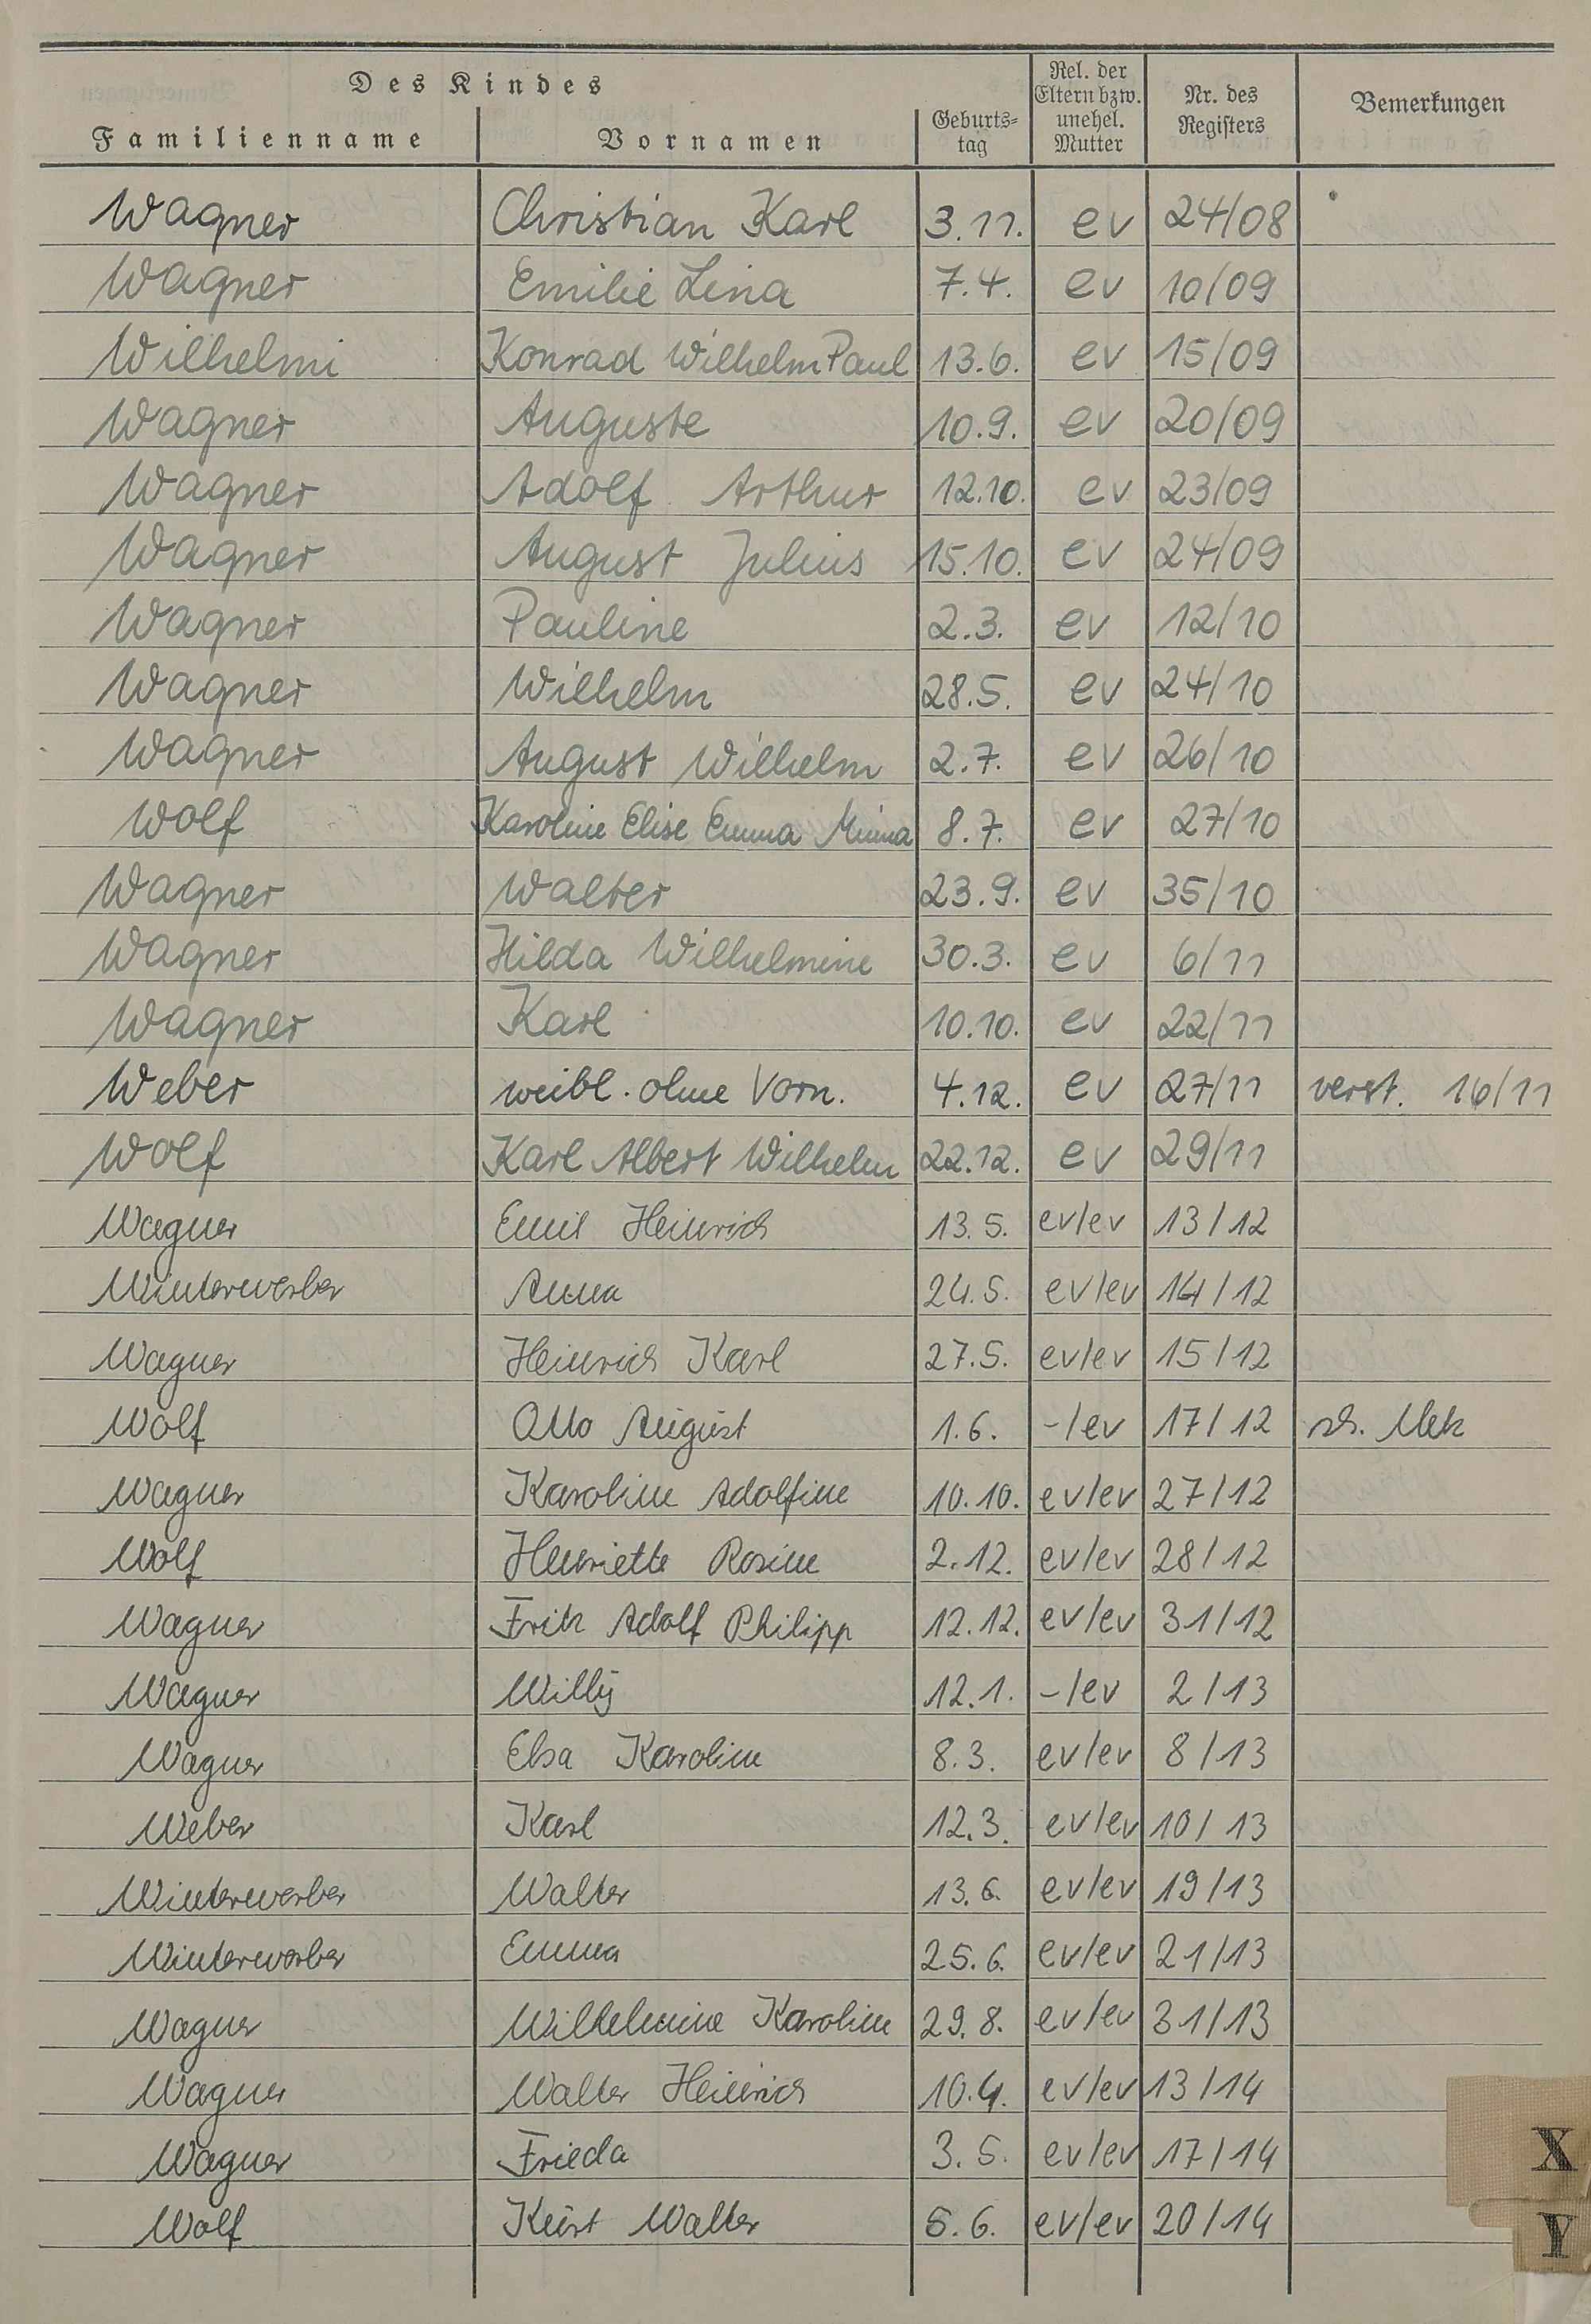 Des Kindes
Familienname Vornamen Geburts=tag Rel. der Eltern bzw. unehel. Mutter Nr. des Registers Bemerkungen
Wagner Christian Karl 3.11. ev 24/08
Wagner Emilie Lina 7.4. ev 10/09
Wilhelmi Konrad Wilhelm Paul 13.6. ev 15/09
Wagner Auguste 10.9. ev 20/09
Wagner Adolf Arthur 12.10. ev 23/09
Wagner August Julius 15.10. ev 24/09
Wagner Pauline 2.3. ev 12/10
Wagner Wilhelm 28.5. ev 24/10
Wagner August Wilhelm 2.7. ev 26/10
Wolf Karoline Elise Emma Minna 8.7. ev 27/10
Wagner Walter 23.9. ev 35/10
Wagner Hilda Wilhelmine 30.3. ev 6/11
Wagner Karl 10.10. ev 22/11
Weber weibl. ohne Vorn. 4.12. ev 27/11 verst. 16/11
Wolf Karl Albert Wilhelm 22.12. ev 29/11
Wagner Emil Heinrich 13.5. ev/ev 13/12
Winterwerber Anna 24.5. ev/ev 14/12
Wagner Heinrich Karl 27.5. ev/ev 15/12
Wolf Otto August 1.6. -/ev 17/12
Wagner Karoline Adolfine 10.10. ev/ev 27/12
Wolf Henriette Rosine 2.12. ev/ev 28/12
Wagner Fritz Adolf Philipp 12.12. ev/ev 31/12
Wagner Willy 12.1. -/ev 2/13
Wagner Elsa Karoline 8.3. ev/ev 8/13
Weber Karl 12.3. ev/ev 10/13
Winterwerber Walter 13.6. ev/ev 19/13
Winterwerber Emma 25.6. ev/ev 21/13
Wagner Wilhelmine Karoline 29.8. ev/ev 31/13
Wagner Walter Heinrich 10.4. ev/ev 13/14
Wagner Frieda 3.5. ev/ev 17/14
X
Wolf Kurt Walter 5.6. ev/ev 20/14
Y